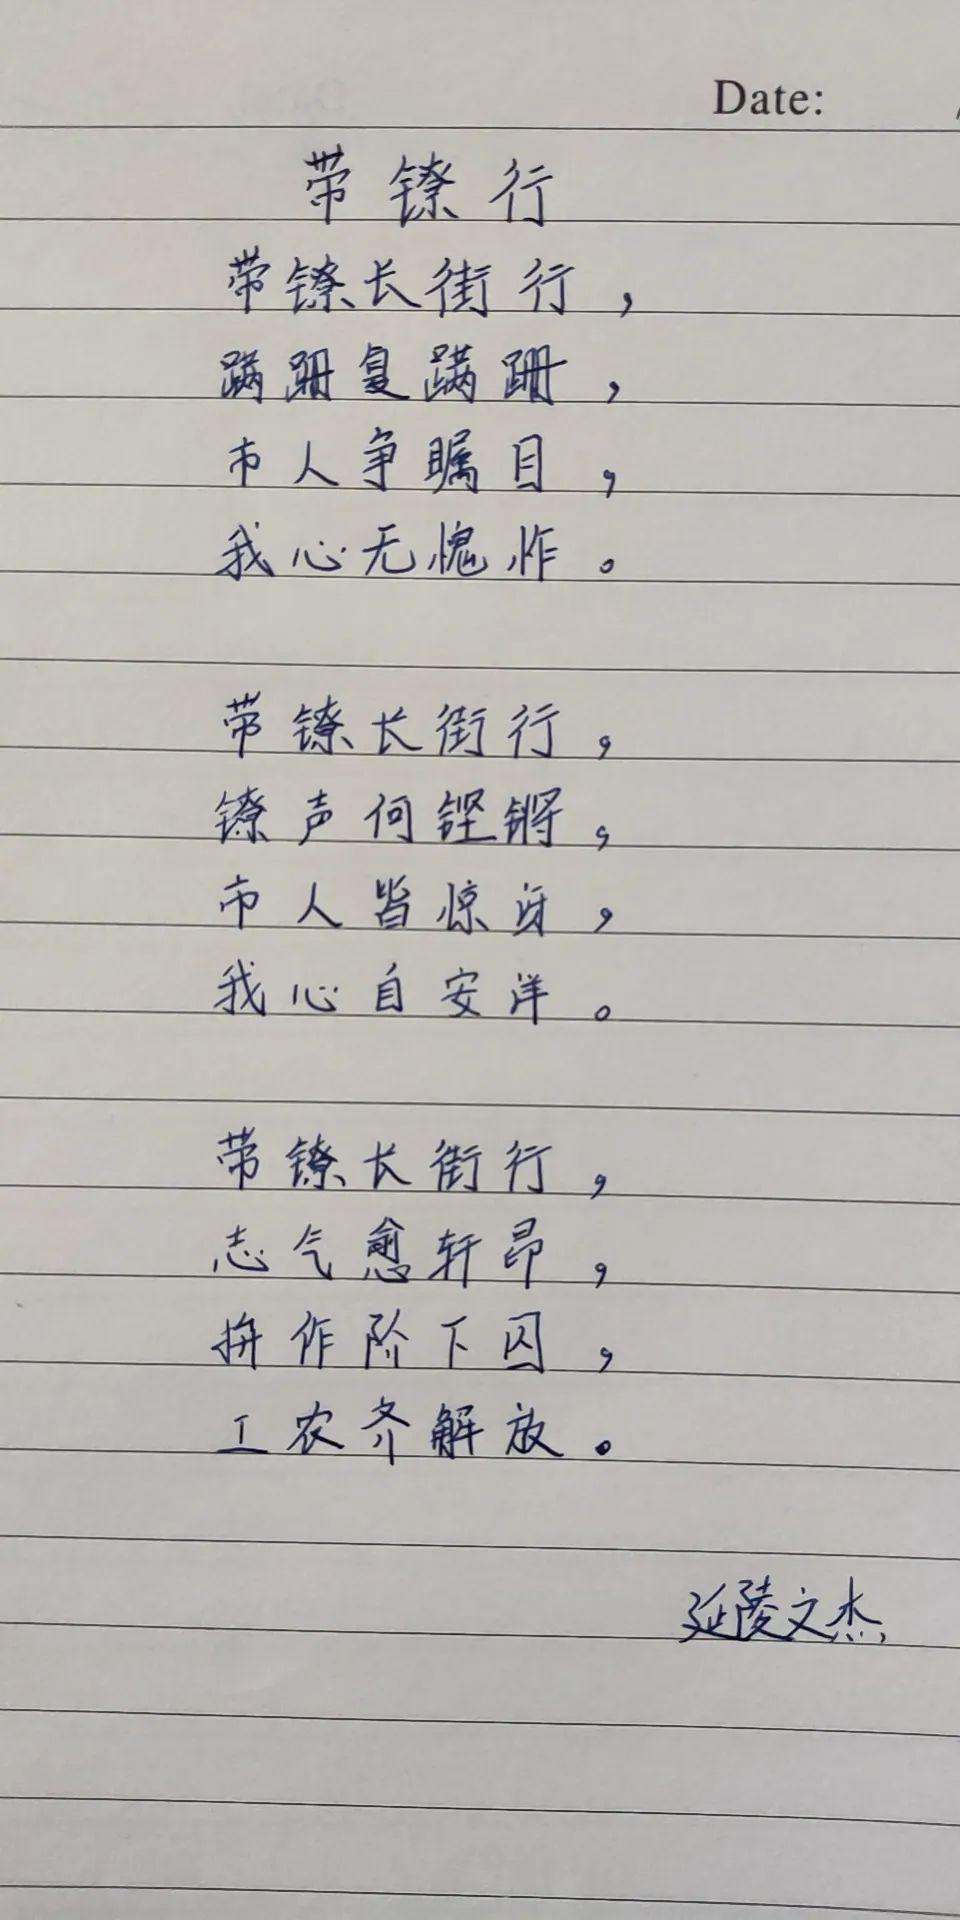 Date:
带镣行
带镣长街行，
蹒跚复蹒跚，
市人争瞩目，
我心无愧怍。
带镣长街行，
镣声何铿锵，
市人皆惊讶，
我心自安详。
带镣长街行，
志气愈轩昂，
拚作阶下囚，
工农齐解放。
延陵文杰